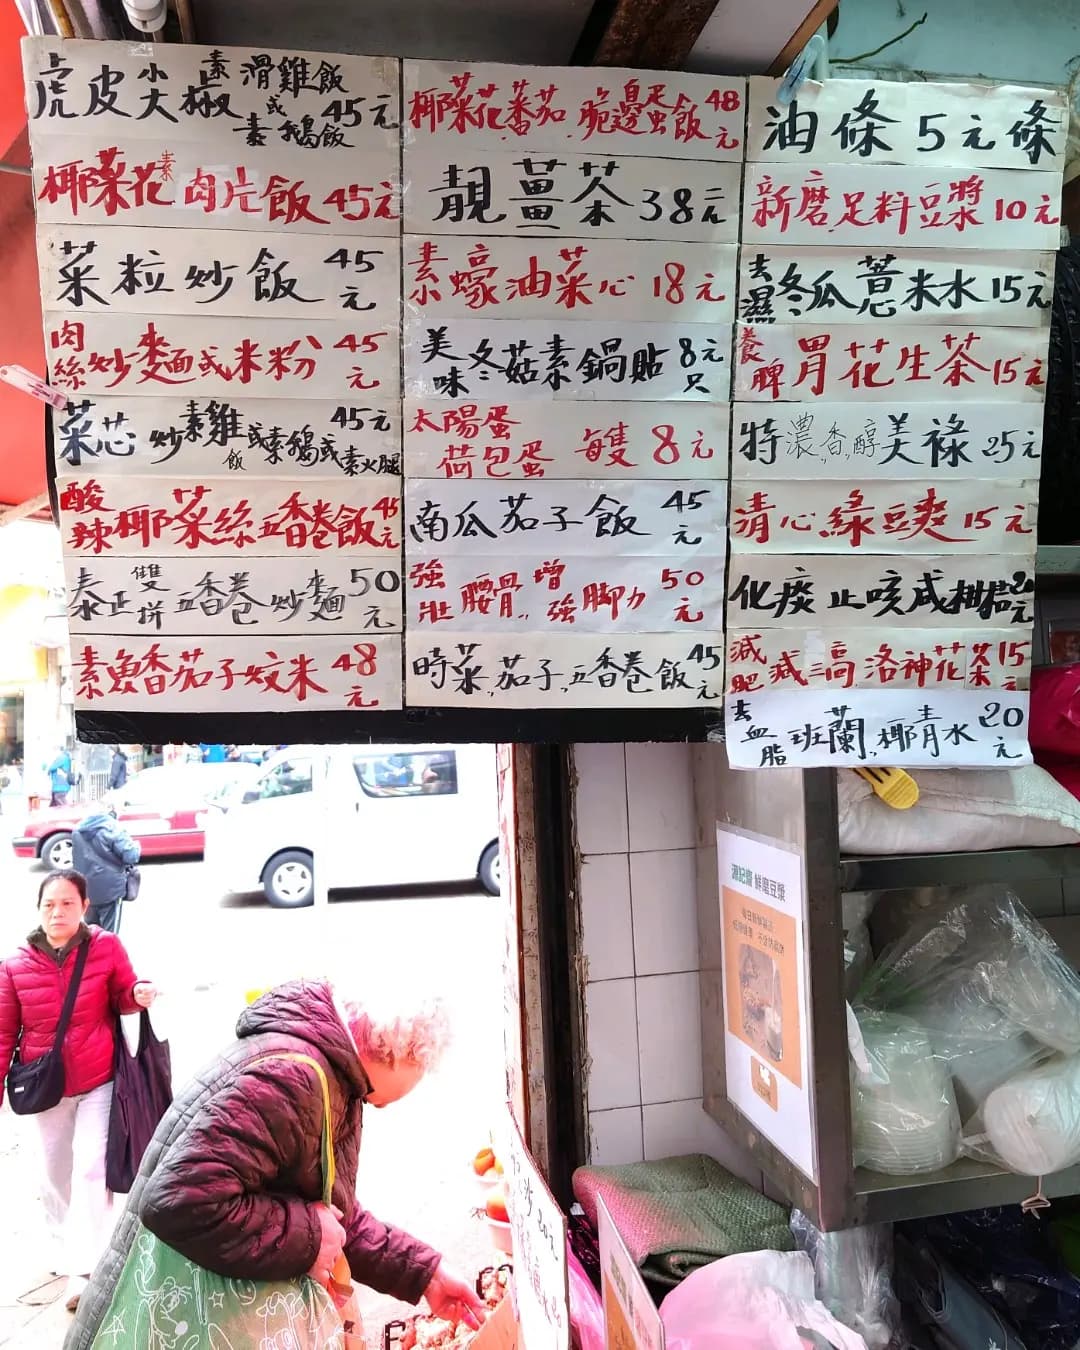 虎皮尖椒素滑雞飯或素鵝飯45元
椰菜花素肉片飯45元
菜粒炒飯45元
肉絲炒麵或米粉45元
菜芯炒素雞飯或素鵝或素火腿45元
酸辣椰菜絲五香卷飯45元
泰正雙拼五香卷炒麵50元
素魚香茄子炆米48元
椰菜花蕃茄脆邊蛋飯48元
靚薑茶38元
素蠔油菜心18元
美味冬菇素鍋貼8元只
太陽蛋
荷包蛋 每隻8元
南瓜茄子飯45元
強壯腰骨,,增強腳力50元
時菜,,茄子,,五香卷飯45元
油條5元條
新磨足料豆漿10元
去濕冬瓜薏米水15元
養脾胃花生茶15元
特濃,,香,,醇美祿25元
清心綠豆爽15元
化痰止咳咸柑桔20元
減肥減三高洛神花茶15元
去血脂班蘭,,椰青水20元
源記齋 鮮磨豆漿